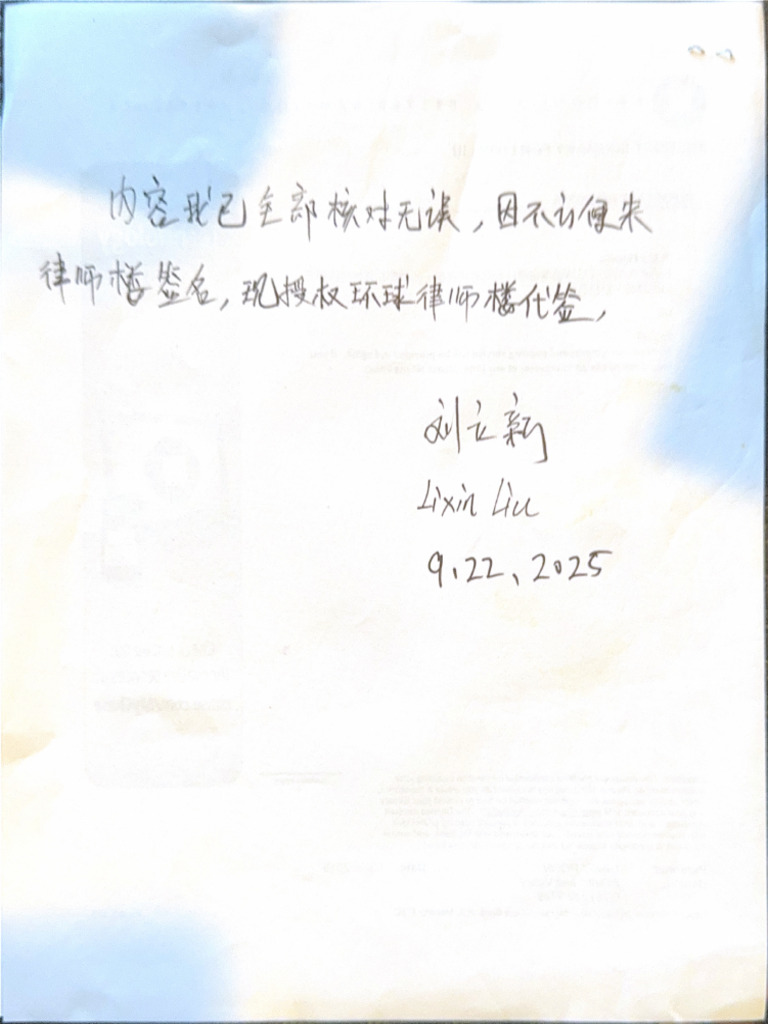 内容我已全部核对无误，因不方便来
律师楼签名，现授权环球律师楼代签，
刘立新
Lixin Liu
9.22、2025